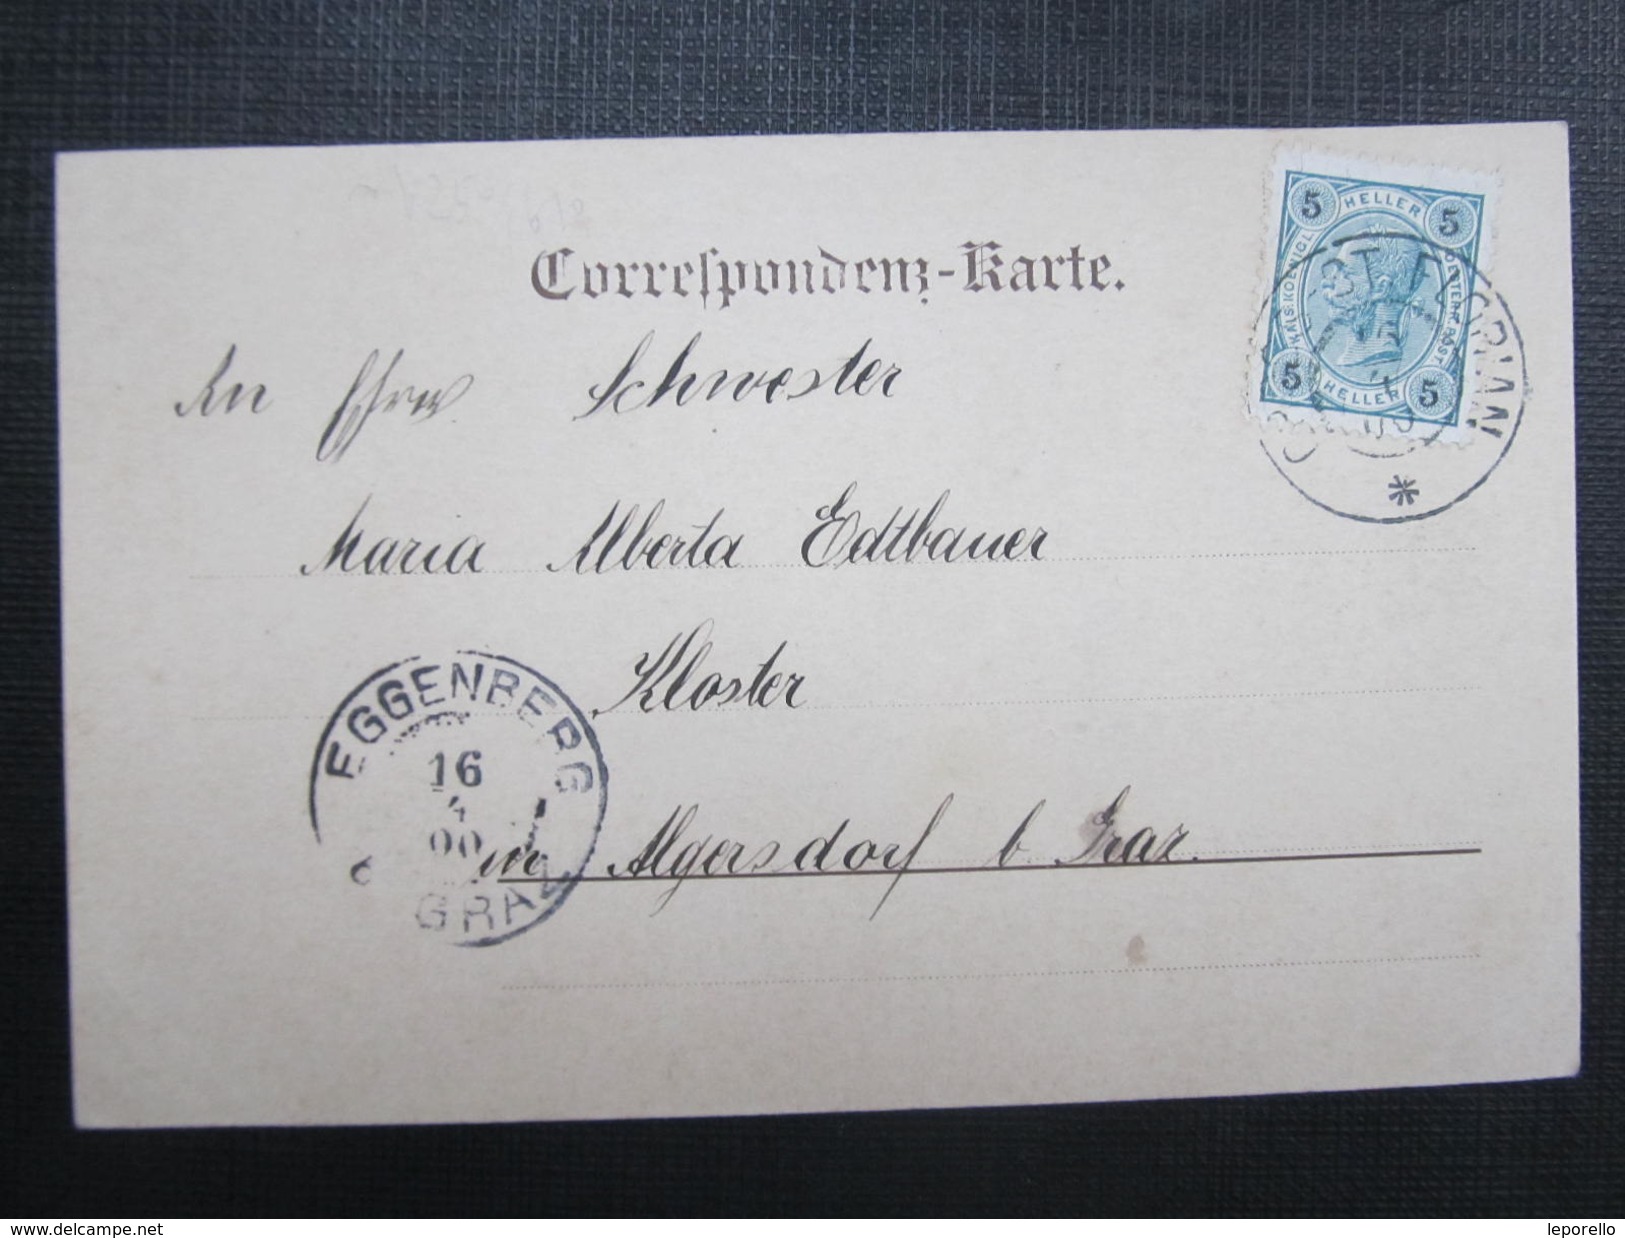 Correspondenz-Karte.
5 HELLER 5
5 HELLER 5
ST. FLORIAN
*
An Ehrw Schwester
Maria Alberta Edtbauer
Kloster
EGGENBERG
16
4
00
GRAZ
in Algersdorf b. Graz.
www.delcampe.net
leporello